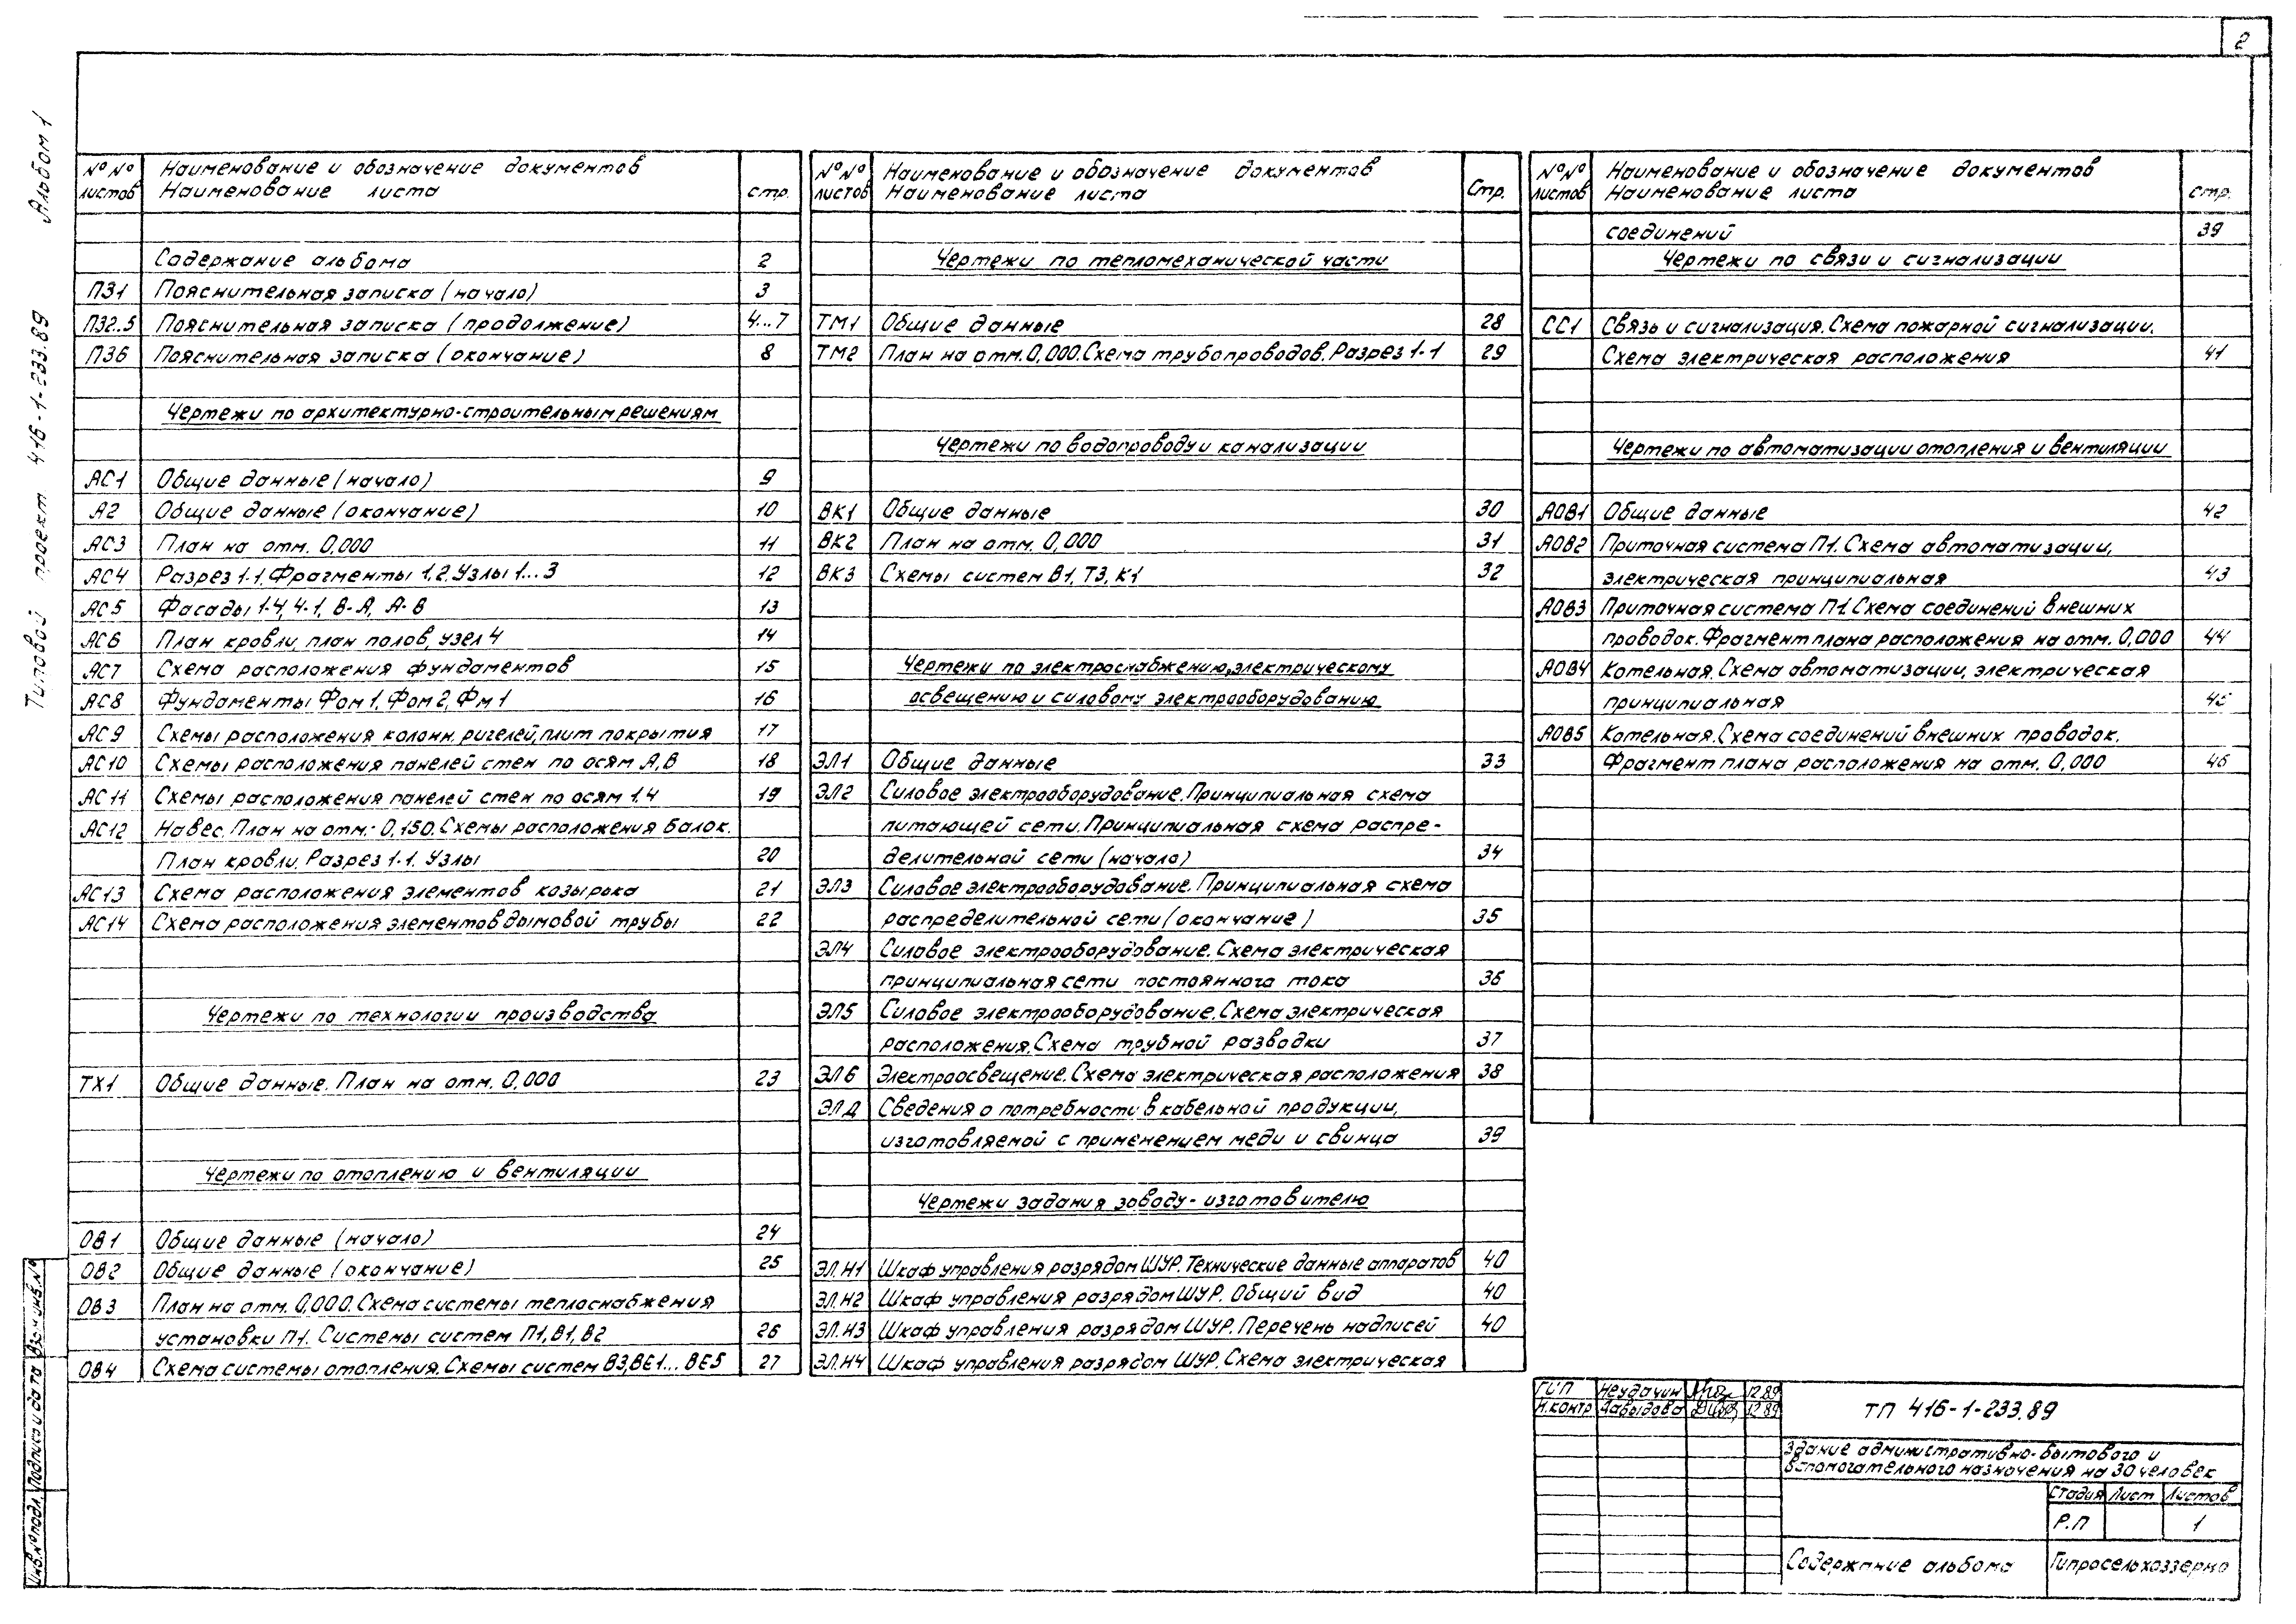 2
Альбом 1
Типовой проект 416-1-233.89
№№ листов
Наименование и обозначение документов
Наименование листа
стр.
Содержание альбома 2
ПЗ1 Пояснительная записка (начало) 3
ПЗ2..5 Пояснительная записка (продолжение) 4...7
ПЗ6 Пояснительная записка (окончание) 8
Чертежи по архитектурно-строительным решениям
АС1 Общие данные (начало) 9
А2 Общие данные (окончание) 10
АС3 План на отм. 0,000 11
АС4 Разрез 1-1, Фрагменты 1,2. Узлы 1...3 12
АС5 Фасады 1-4, 4-1, В-А, А-В 13
АС6 План кровли, план полов, узел 4 14
АС7 Схема расположения фундаментов 15
АС8 Фундаменты Фом1, Фом2, Фм1 16
АС9 Схемы расположения колонн. ригелей, плит покрытия 17
АС10 Схемы расположения панелей стен по осям А,В 18
АС11 Схемы расположения панелей стен по осям 1.4 19
АС12 Навес. План на отм.-0,150. Схемы расположения балок.
План кровли. Разрез 1-1. Узлы 20
АС13 Схема расположения элементов козырька 21
АС14 Схема расположения элементов дымовой трубы 22
Чертежи по технологии производства
ТХ1 Общие данные. План на отм. 0,000 23
Чертежи по отоплению и вентиляции
ОВ1 Общие данные (начало) 24
ОВ2 Общие данные (окончание) 25
ОВ3 План на отм. 0,000. Схема системы теплоснабжения
установки П1. Системы систем П1, В1, В2 26
ОВ4 Схема системы отопления. Схемы систем В3, ВЕ1... ВЕ5 27
№№ листов
Наименование и обозначение документов
Наименование листа
Стр.
Чертежи по тепломеханической части
ТМ1 Общие данные 28
ТМ2 План на отм. 0,000. Схема трубопроводов. Разрез 1-1 29
Чертежи по водопроводу и канализации
ВК1 Общие данные 30
ВК2 План на отм. 0,000 31
ВК3 Схемы систем В1, Т3, К1 32
Чертежи по электроснабжению, электрическому
освещению и силовому электрооборудованию
ЭЛ1 Общие данные 33
ЭЛ2 Силовое электрооборудование. Принципиальная схема
питающей сети. Принципиальная схема распре-
делительной сети (начало) 34
ЭЛ3 Силовое электрооборудование. Принципиальная схема
распределительной сети (окончание) 35
ЭЛ4 Силовое электрооборудование. Схема электрическая
принципиальная сети постоянного тока 36
ЭЛ5 Силовое электрооборудование. Схема электрическая
расположения. Схема трубной разводки 37
ЭЛ6 Электроосвещение. Схема электрическая расположения 38
ЭЛД Сведения о потребности в кабельной продукции,
изготовляемой с применением меди и свинца 39
Чертежи задания заводу-изготовителю
ЭЛ.Н1 Шкаф управления разрядом ШУР. Технические данные аппаратов 40
ЭЛ.Н2 Шкаф управления разрядом ШУР. Общий вид 40
ЭЛ.Н3 Шкаф управления разрядом ШУР. Перечень надписей 40
ЭЛ.Н4 Шкаф управления разрядом ШУР. Схема электрическая
№№ листов
Наименование и обозначение документов
Наименование листа
стр.
соединений 39
Чертежи по связи и сигнализации
СС1 Связь и сигнализация. Схема пожарной сигнализации.
Схема электрическая расположения 41
Чертежи по автоматизации отопления и вентиляции
АОВ1 Общие данные 42
АОВ2 Приточная система П1. Схема автоматизации,
электрическая принципиальная 43
АОВ3 Приточная система П1. Схема соединений внешних
проводок. Фрагмент плана расположения на отм. 0,000 44
АОВ4 Котельная. Схема автоматизации, электрическая
принципиальная 45
АОВ5 Котельная. Схема соединений внешних проводок.
Фрагмент плана расположения на отм. 0,000 46
ГИП Неудачин 12.89
Н.контр Давыдова 12.89
ТП 416-1-233.89
Здание административно-бытового и
вспомогательного назначения на 30 человек
Стадия Лист Листов
Р.П 1
Содержание альбома
Гипросельхоззерно
Инв.№ подл. Подпись и дата Взам.инв.№